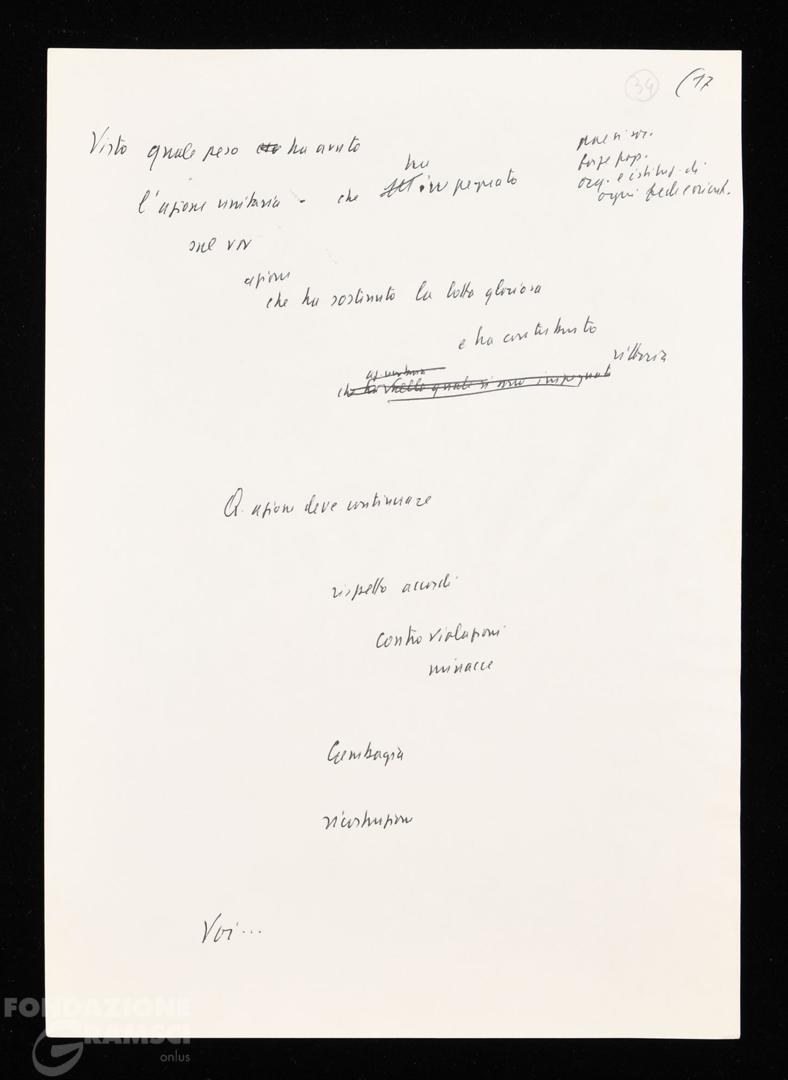 34 (17
Visto quale peso ha avuto
l'azione unitaria - che ha impegnato
paesi soc.
forze pop.
org. e istituz. di
ogni fede e orient.
sul VN
azione
che ha sostenuto la lotta gloriosa
e ha contribuito
vittoria
che ha nella quale si sono impegnati
Q. azione deve continuare
rispetto accordi
contro violazioni
minacce
Cambogia
ricostruzione
Voi...
FONDAZIONE
GRAMSCI
onlus